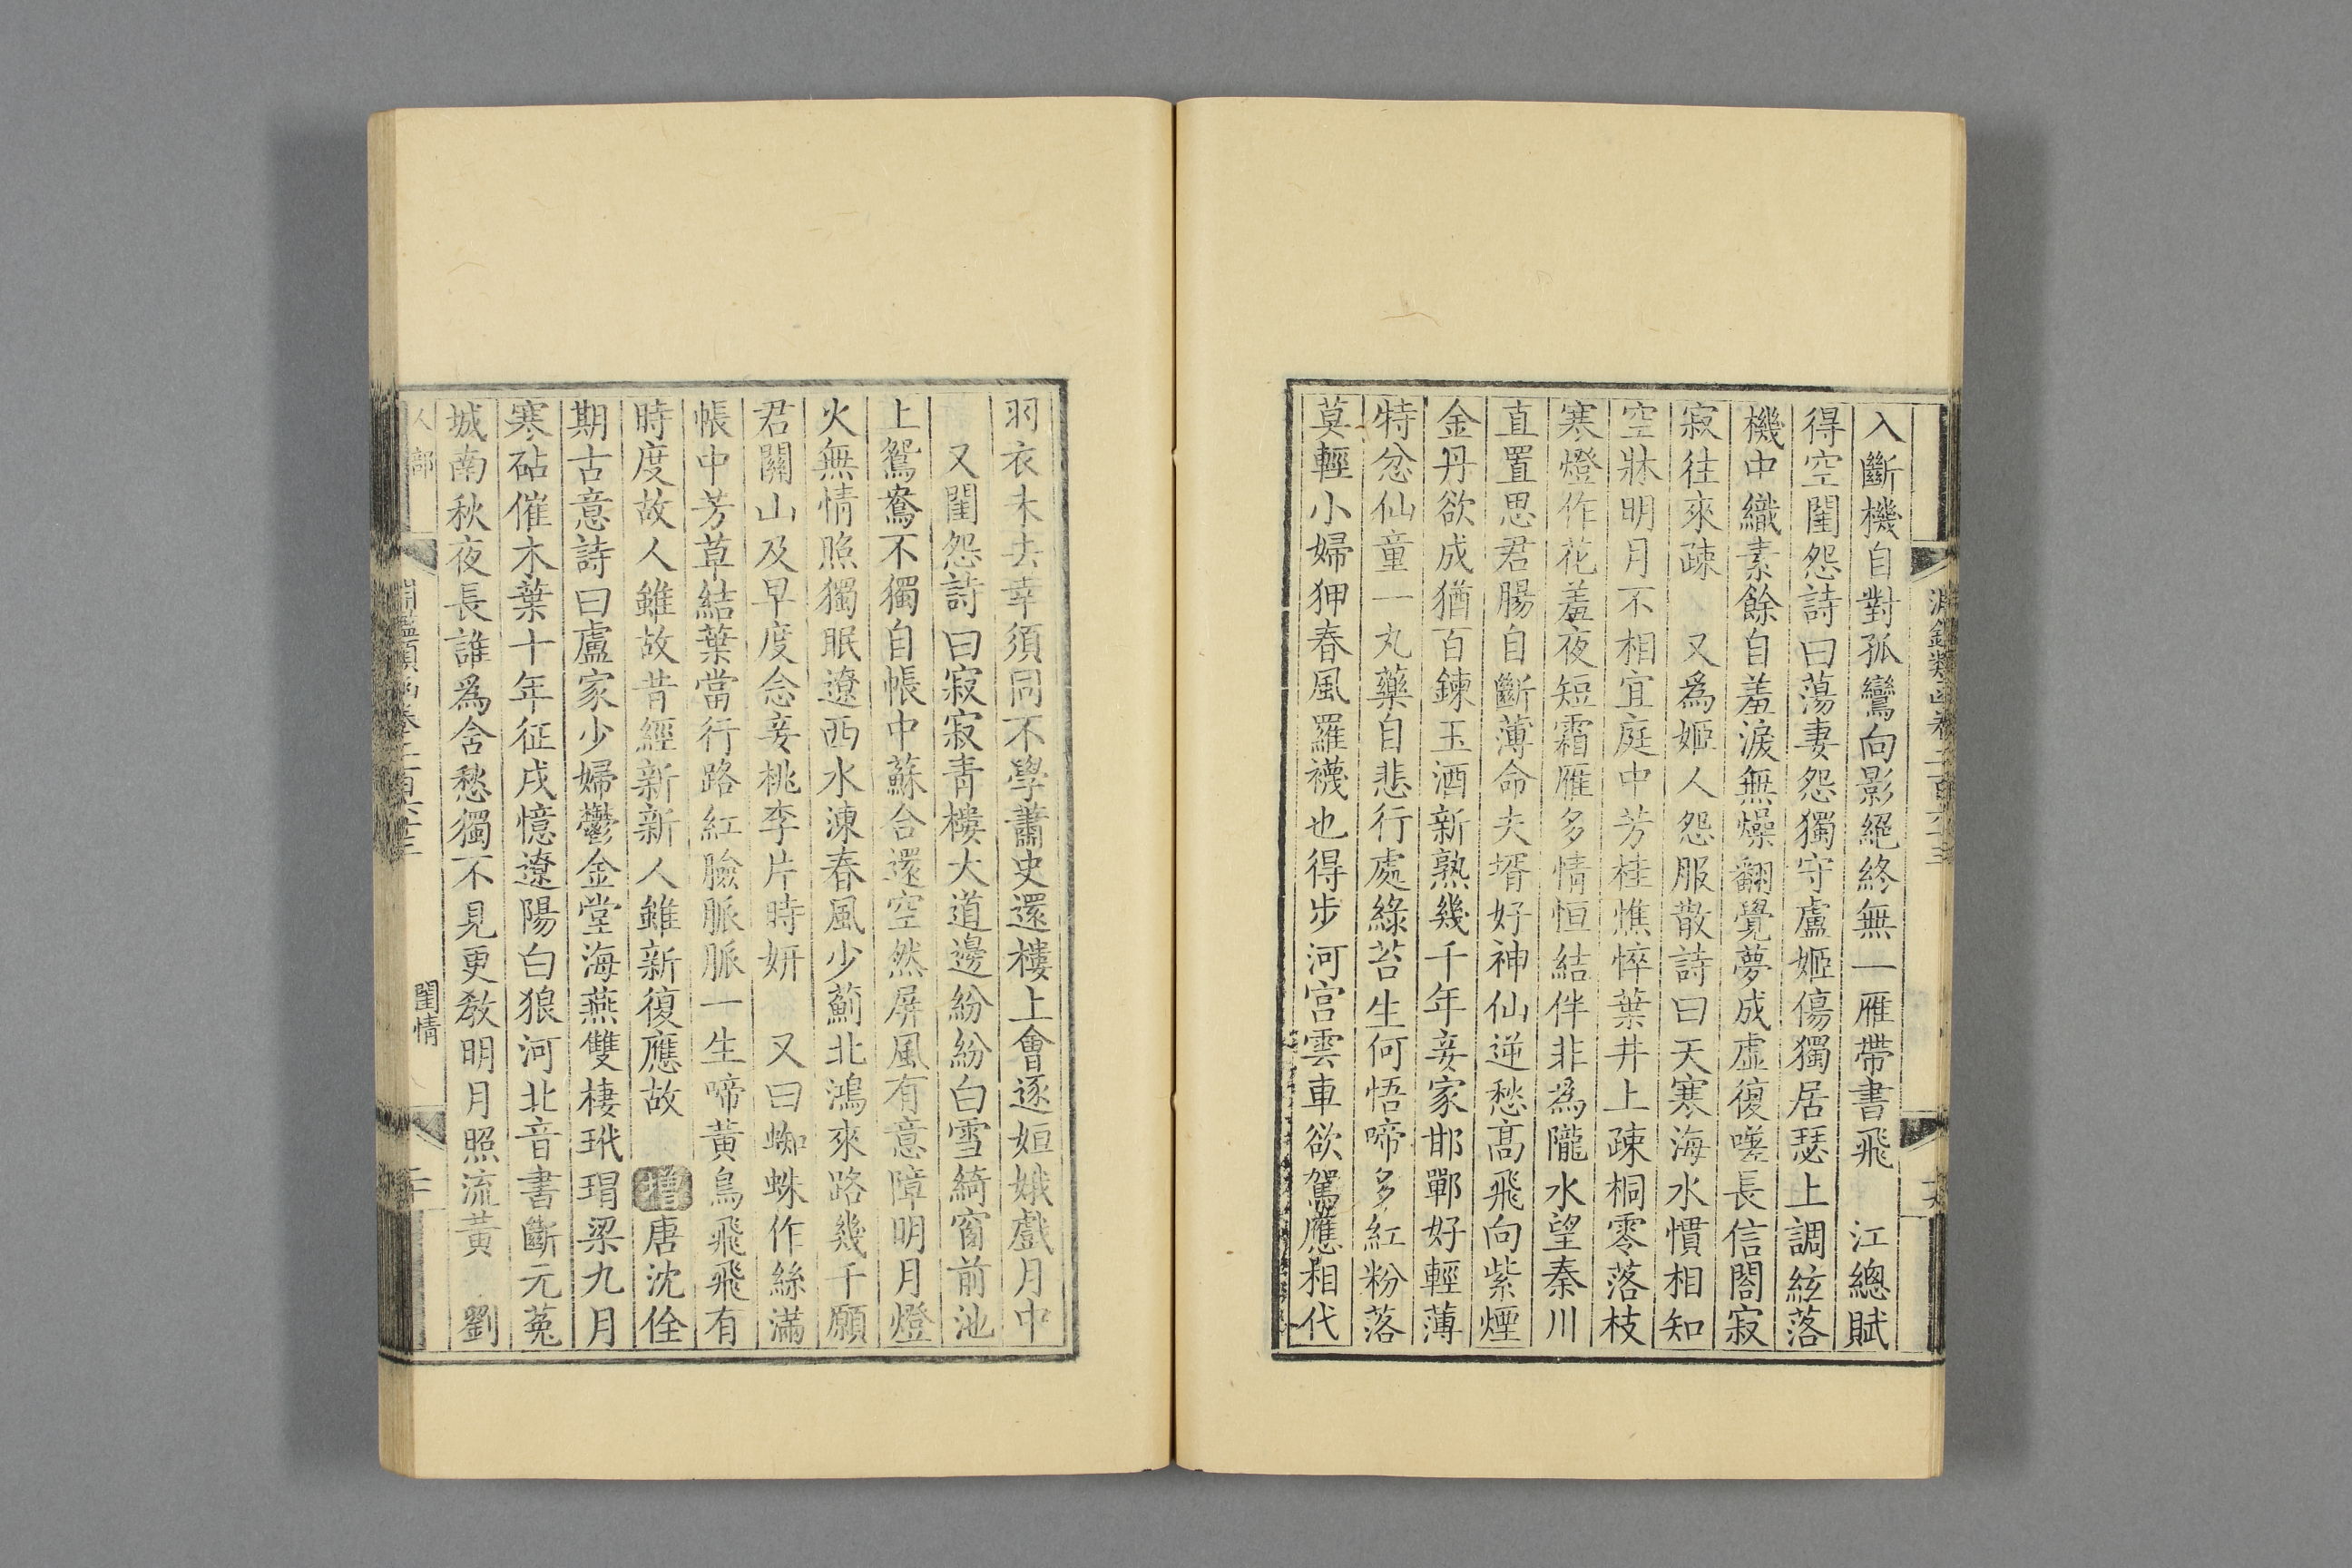 淵鑑類函卷二百六十三
十九
入斷機自對孤鸞向影絕終無一雁帶書飛　江總賦
得空閨怨詩曰蕩妻怨獨守盧姬傷獨居瑟上調絃落
機中織素餘自羞淚無燥翻覺夢成虛復嗟長信閤寂
寂往來疎　又爲姬人怨服散詩曰天寒海水慣相知
空牀明月不相宜庭中芳桂憔悴葉井上疎桐零落枝
寒燈作花羞夜短霜雁多情恒結伴非爲隴水望秦川
直置思君腸自斷薄命夫壻好神仙逆愁高飛向紫煙
金丹欲成猶百鍊玉酒新熟幾千年妾家邯鄲好輕薄
特忿仙童一丸藥自悲行處綠苔生何悟啼多紅粉落
莫輕小婦狎春風羅襪也得步河宮雲車欲駕應相代
羽衣未去幸須同不學蕭史還樓上會逐姮娥戲月中
又閨怨詩曰寂寂青樓大道邊紛紛白雪綺窗前池
上鴛鴦不獨自帳中蘇合還空然屏風有意障明月燈
火無情照獨眠遼西水凍春風少薊北鴻來路幾千願
君關山及早度念妾桃李片時妍　又曰蜘蛛作絲滿
帳中芳草結葉當行路紅臉脈脈一生啼黃鳥飛飛有
時度故人雖故昔經新新人雖新復應故　增唐沈佺
期古意詩曰盧家少婦鬱金堂海燕雙棲玳瑁梁九月
寒砧催木葉十年征戍憶遼陽白狼河北音書斷元菟
城南秋夜長誰爲含愁獨不見更敎明月照流黃　劉
人部
淵鑑類函卷二百六十三
閨情
二十